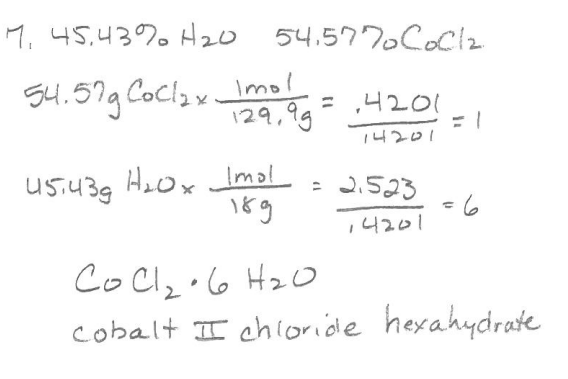 7. 45.43% H2O 54.57% CoCl2
54.57g CoCl2 x 1mol / 129.9g = .4201 / .4201 = 1
45.43g H2O x 1mol / 18g = 2.523 / .4201 = 6
CoCl2 · 6 H2O
cobalt II chloride hexahydrate